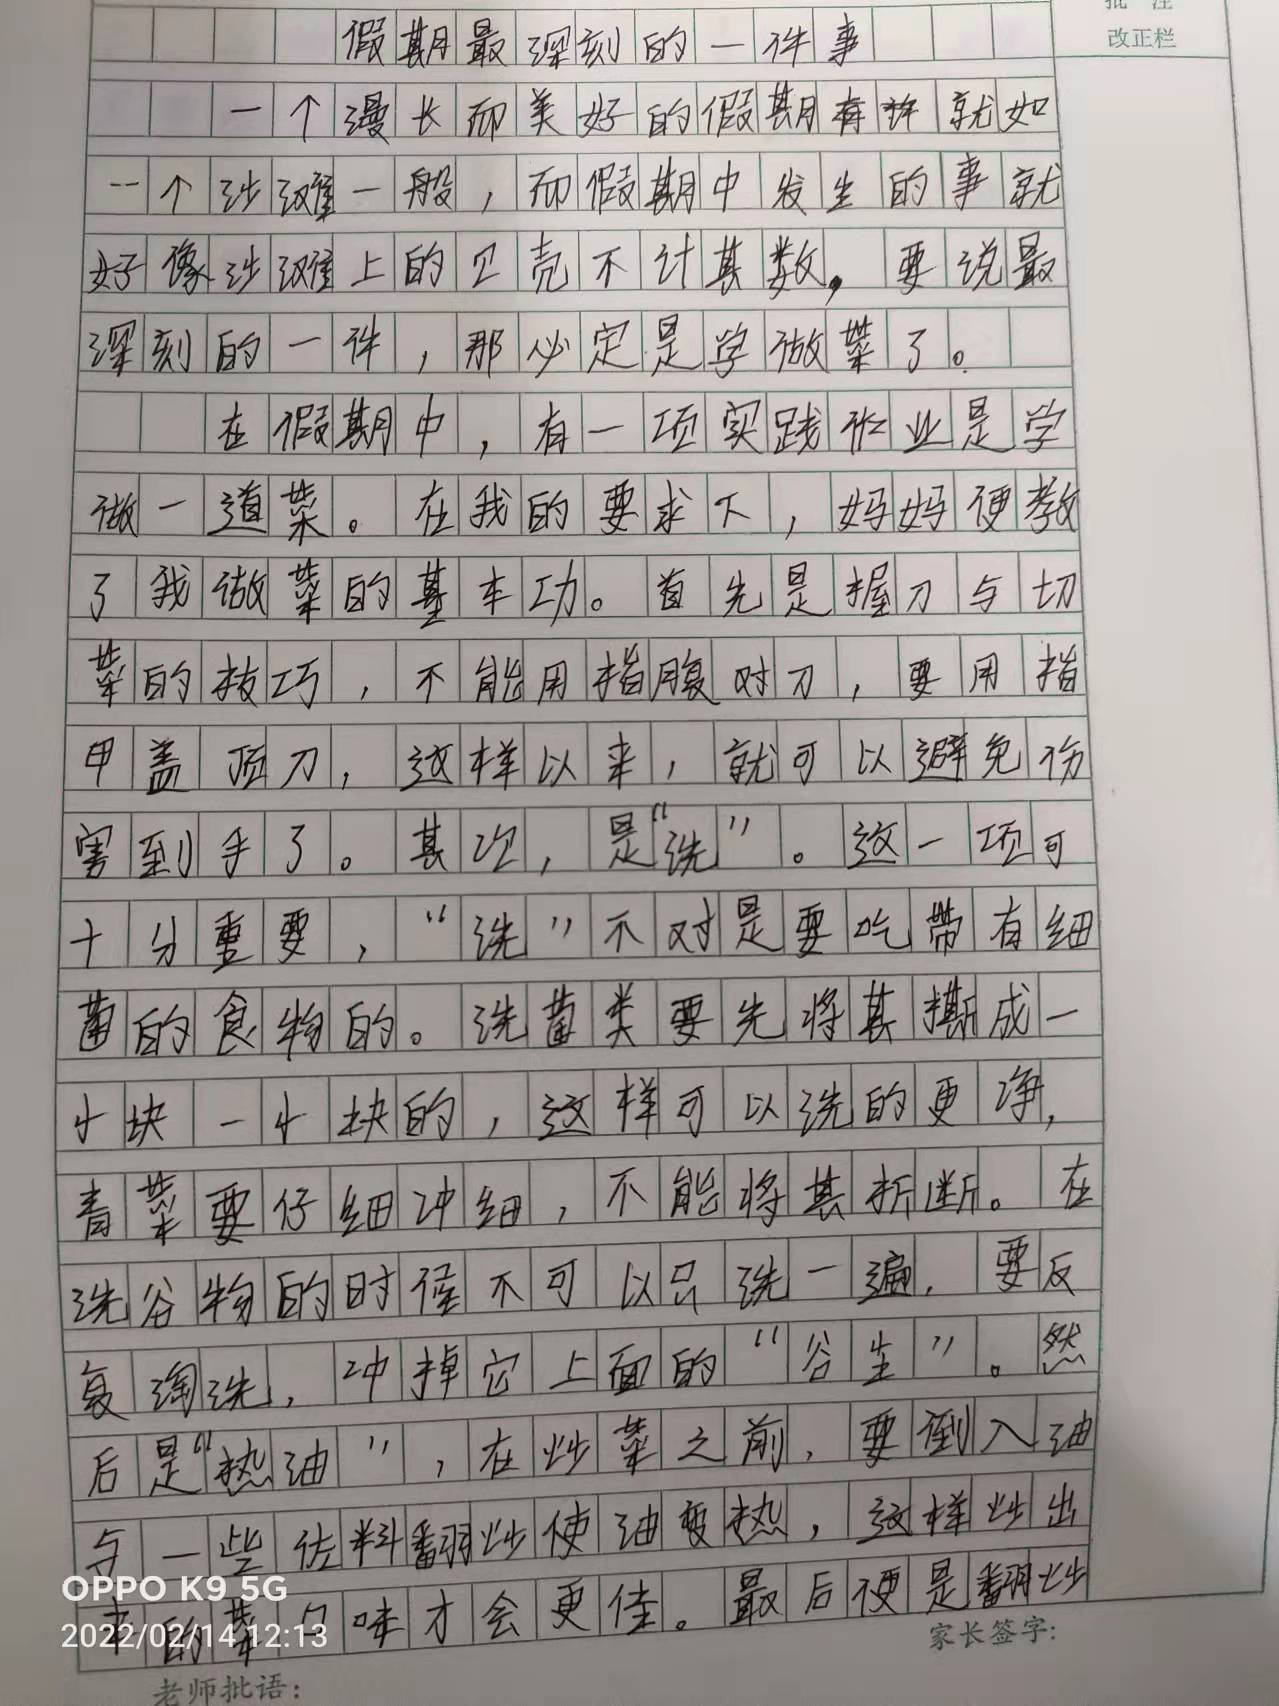 批注
改正栏
假期最深刻的一件事
一个漫长而美好的假期有许就如
一个沙滩一般，而假期中发生的事就
好像沙滩上的贝壳不计其数，要说最
深刻的一件，那必定是学做菜了。
在假期中，有一项实践作业是学
做一道菜。在我的要求下，妈妈便教
了我做菜的基本功。首先是握刀与切
菜的技巧，不能用指腹对刀，要用指
甲盖顶刀，这样以来，就可以避免伤
害到手了。其次，是“洗”。这一项可
十分重要，“洗”不对是要吃带有细
菌的食物的。洗菌类要先将其撕成一
小块一小块的，这样可以洗的更净，
青菜要仔细冲细，不能将其折断。在
洗谷物的时候不可以只洗一遍，要反
复淘洗，冲掉它上面的“谷尘”。然
后是“热油”，在炒菜之前，要倒入油
与一些佐料翻炒使油变热，这样炒出
来的菜口味才会更佳。最后便是翻炒
OPPO K9 5G
2022/02/14 12:13
家长签字:
老师批语: